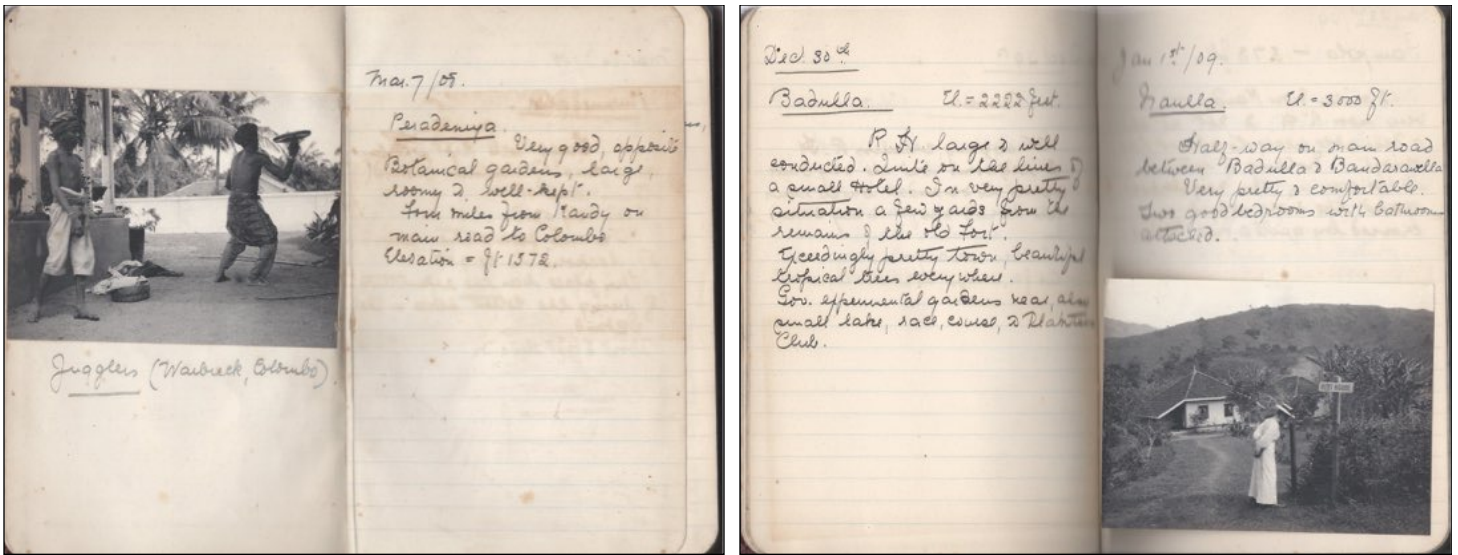 Jugglers (Warbreck, Colombo)
Mar. 7/09.
Peradeniya.
Very good, opposite
Botanical gardens, large,
roomy & well-kept.
Four miles from Kandy on
main road to Colombo
Elevation = ft 1572.
Dec. 30th
Badulla. El. = 2222 feet.
R. H. large & well
conducted. Quite on the lines of
a small Hotel. In very pretty
situation a few yards from the
remains of the old Fort.
Exceedingly pretty town, beautiful
tropical trees everywhere.
Gov. experimental gardens near, also
small lake, race, course, & Planters
Club.
Jan 1st/09.
El. = 3000 ft.
Half-way on main road
between Badulla & Bandarawella
Very pretty & comfortable.
Two good bedrooms with bathrooms
attached.
REST HOUSE